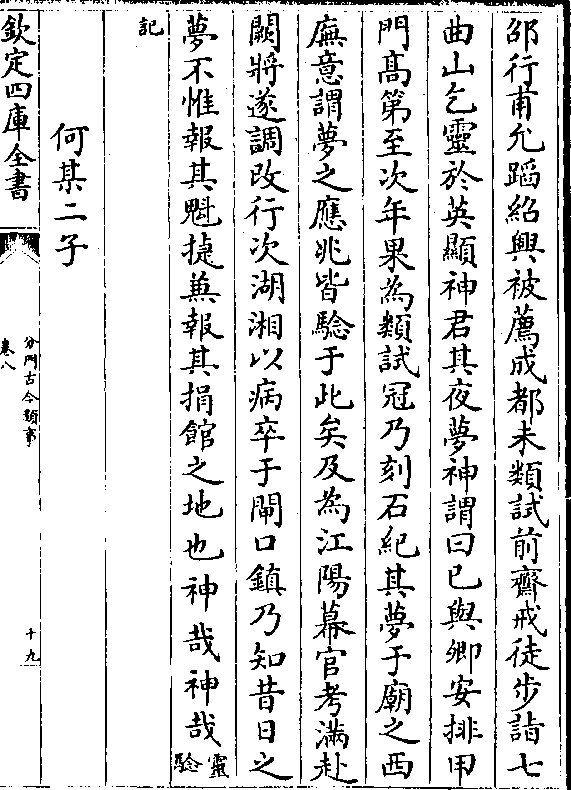 邵行甫允蹈紹興被薦成都未類試前齋戒徒步詣七
曲山乞靈於英顯神君其夜夢神謂曰已與卿安排甲
門髙第至次年果為類試冠乃刻石紀其夢于廟之西
廡意謂夢之應兆皆騐于此矣及為江陽幕官考滿赴
闕將遂調改行次湖湘以病卒于閘口鎮乃知昔日之
夢不惟報其魁㨗兼報其捐館之地也神哉神哉靈騐
記
何某二子
欽定四庫全書
分門古今類事
卷八
十九